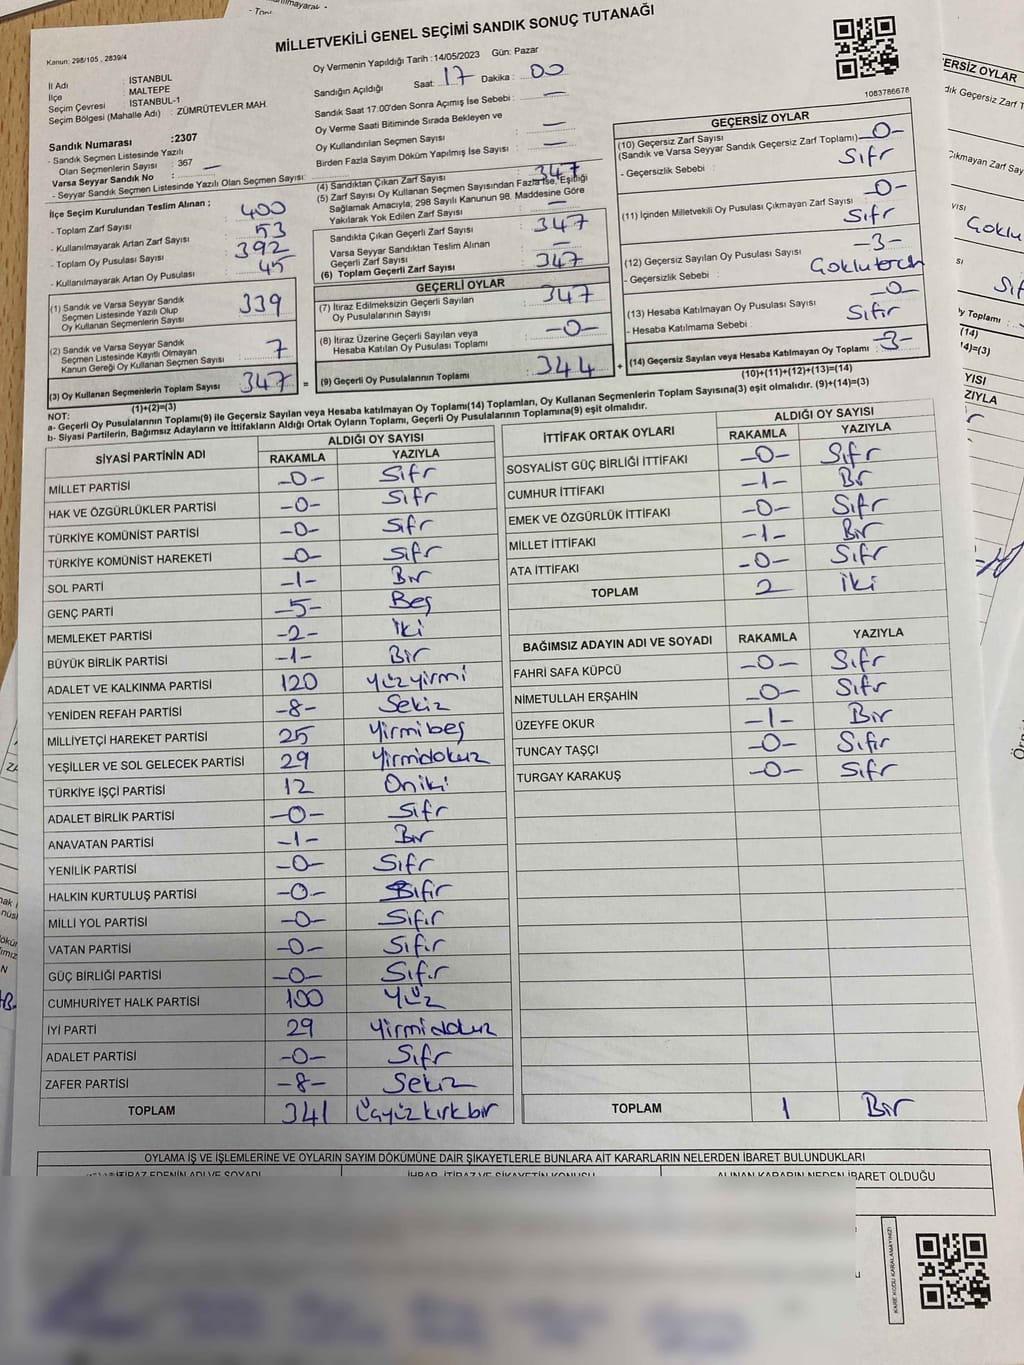 MİLLETVEKİLİ GENEL SEÇİMİ SANDIK SONUÇ TUTANAĞI
Kanun: 298/105 , 2839/4
Oy Vermenin Yapıldığı Tarih :14/05/2023 Gün: Pazar
İl Adı : İSTANBUL
İlçe : MALTEPE
Seçim Çevresi : İSTANBUL-1
Seçim Bölgesi (Mahalle Adı) : ZÜMRÜTEVLER MAH.
Sandığın Açıldığı Saat: 17 Dakika : 00
Sandık Saat 17:00'den Sonra Açımış İse Sebebi : —
Oy Verme Saati Bitiminde Sırada Bekleyen ve
Oy Kullandırılan Seçmen Sayısı : —
Birden Fazla Sayım Döküm Yapılmış İse Sayısı : —
1083786678
Sandık Numarası :2307
- Sandık Seçmen Listesinde Yazılı
Olan Seçmenlerin Sayısı : 367
Varsa Seyyar Sandık No : —
- Seyyar Sandık Seçmen Listesinde Yazılı Olan Seçmen Sayısı:
İlçe Seçim Kurulundan Teslim Alınan ;
- Toplam Zarf Sayısı : 400
- Kullanılmayarak Artan Zarf Sayısı : 53
- Toplam Oy Pusulası Sayısı : 392
- Kullanılmayarak Artan Oy Pusulası : 45
(1) Sandık ve Varsa Seyyar Sandık
Seçmen Listesinde Yazılı Olup
Oy Kullanan Seçmenlerin Sayısı : 339
(2) Sandık ve Varsa Seyyar Sandık
Seçmen Listesinde Kayıtlı Olmayan
Kanun Gereği Oy Kullanan Seçmen Sayısı : 7
(3) Oy Kullanan Seçmenlerin Toplam Sayısı : 347 =
(1)+(2)=(3)
(4) Sandıktan Çıkan Zarf Sayısı : 347
(5) Zarf Sayısı Oy Kullanan Seçmen Sayısından Fazla İse, Eşitliği
Sağlamak Amacıyla, 298 Sayılı Kanunun 98. Maddesine Göre
Yakılarak Yok Edilen Zarf Sayısı : —
Sandıkta Çıkan Geçerli Zarf Sayısı : 347
Varsa Seyyar Sandıktan Teslim Alınan
Geçerli Zarf Sayısı : —
(6) Toplam Geçerli Zarf Sayısı : 347
GEÇERLİ OYLAR
(7) İtiraz Edilmeksizin Geçerli Sayılan
Oy Pusulalarının Sayısı : 347
(8) İtiraz Üzerine Geçerli Sayılan veya
Hesaba Katılan Oy Pusulası Toplamı : -0-
(9) Geçerli Oy Pusulalarının Toplamı : 344 +
GEÇERSİZ OYLAR
(10) Geçersiz Zarf Sayısı
(Sandık ve Varsa Seyyar Sandık Geçersiz Zarf Toplamı) -0-
- Geçersizlik Sebebi : Sıfr
(11) İçinden Milletvekili Oy Pusulası Çıkmayan Zarf Sayısı -0-
Sıfr
(12) Geçersiz Sayılan Oy Pusulası Sayısı -3-
- Geçersizlik Sebebi :
(13) Hesaba Katılmayan Oy Pusulası Sayısı -0-
- Hesaba Katılmama Sebebi : Sıfır
(14) Geçersiz Sayılan veya Hesaba Katılmayan Oy Toplamı : -3-
(10)+(11)+(12)+(13)=(14)
NOT:
a- Geçerli Oy Pusulalarının Toplamı(9) ile Geçersiz Sayılan veya Hesaba katılmayan Oy Toplamı(14) Toplamları, Oy Kullanan Seçmenlerin Toplam Sayısına(3) eşit olmalıdır. (9)+(14)=(3)
b- Siyasi Partilerin, Bağımsız Adayların ve İttifakların Aldığı Ortak Oyların Toplamı, Geçerli Oy Pusulalarının Toplamına(9) eşit olmalıdır.
SİYASİ PARTİNİN ADI ALDIĞI OY SAYISI
RAKAMLA YAZIYLA
MİLLET PARTİSİ -0- Sıfr
HAK VE ÖZGÜRLÜKLER PARTİSİ -0- Sıfr
TÜRKİYE KOMÜNİST PARTİSİ -0- Sıfr
TÜRKİYE KOMÜNİST HAREKETİ -0- Sıfr
SOL PARTİ -1- Bir
GENÇ PARTİ -5- Beş
MEMLEKET PARTİSİ -2- İki
BÜYÜK BİRLİK PARTİSİ -1- Bir
ADALET VE KALKINMA PARTİSİ 120 Yüzyirmi
YENİDEN REFAH PARTİSİ -8- Sekiz
MİLLİYETÇİ HAREKET PARTİSİ 25 Yirmibeş
YEŞİLLER VE SOL GELECEK PARTİSİ 29 Yirmidokuz
TÜRKİYE İŞÇİ PARTİSİ 12 Oniki
ADALET BİRLİK PARTİSİ -0- Sıfr
ANAVATAN PARTİSİ -1- Bir
YENİLİK PARTİSİ -0- Sıfr
HALKIN KURTULUŞ PARTİSİ -0- Sıfır
MİLLİ YOL PARTİSİ -0- Sıfır
VATAN PARTİSİ -0- Sıfır
GÜÇ BİRLİĞİ PARTİSİ -0- Sıfır
CUMHURİYET HALK PARTİSİ 100 Yüz
İYİ PARTİ 29 Yirmidokuz
ADALET PARTİSİ -0- Sıfr
ZAFER PARTİSİ -8- Sekiz
TOPLAM 341 Üçyüzkırkbir
İTTİFAK ORTAK OYLARI ALDIĞI OY SAYISI
RAKAMLA YAZIYLA
SOSYALİST GÜÇ BİRLİĞİ İTTİFAKI -0- Sıfr
CUMHUR İTTİFAKI -1- Bir
EMEK VE ÖZGÜRLÜK İTTİFAKI -0- Sıfr
MİLLET İTTİFAKI -1- Bir
ATA İTTİFAKI -0- Sıfr
TOPLAM 2 İki
BAĞIMSIZ ADAYIN ADI VE SOYADI RAKAMLA YAZIYLA
FAHRİ SAFA KÜPCÜ -0- Sıfr
NİMETULLAH ERŞAHİN -0- Sıfr
ÜZEYFE OKUR -1- Bir
TUNCAY TAŞÇI -0- Sıfır
TURGAY KARAKUŞ -0- Sıfr
TOPLAM 1 Bir
OYLAMA İŞ VE İŞLEMLERİNE VE OYLARIN SAYIM DÖKÜMÜNE DAİR ŞİKAYETLERLE BUNLARA AİT KARARLARIN NELERDEN İBARET BULUNDUKLARI
İTİRAZ EDENİN ADI VE SOYADI İHBAR, İTİRAZ VE ŞİKAYETİN KONUSU ALINAN KARARIN NEDEN İBARET OLDUĞU
KARE KODU KARALAMAYINIZ!